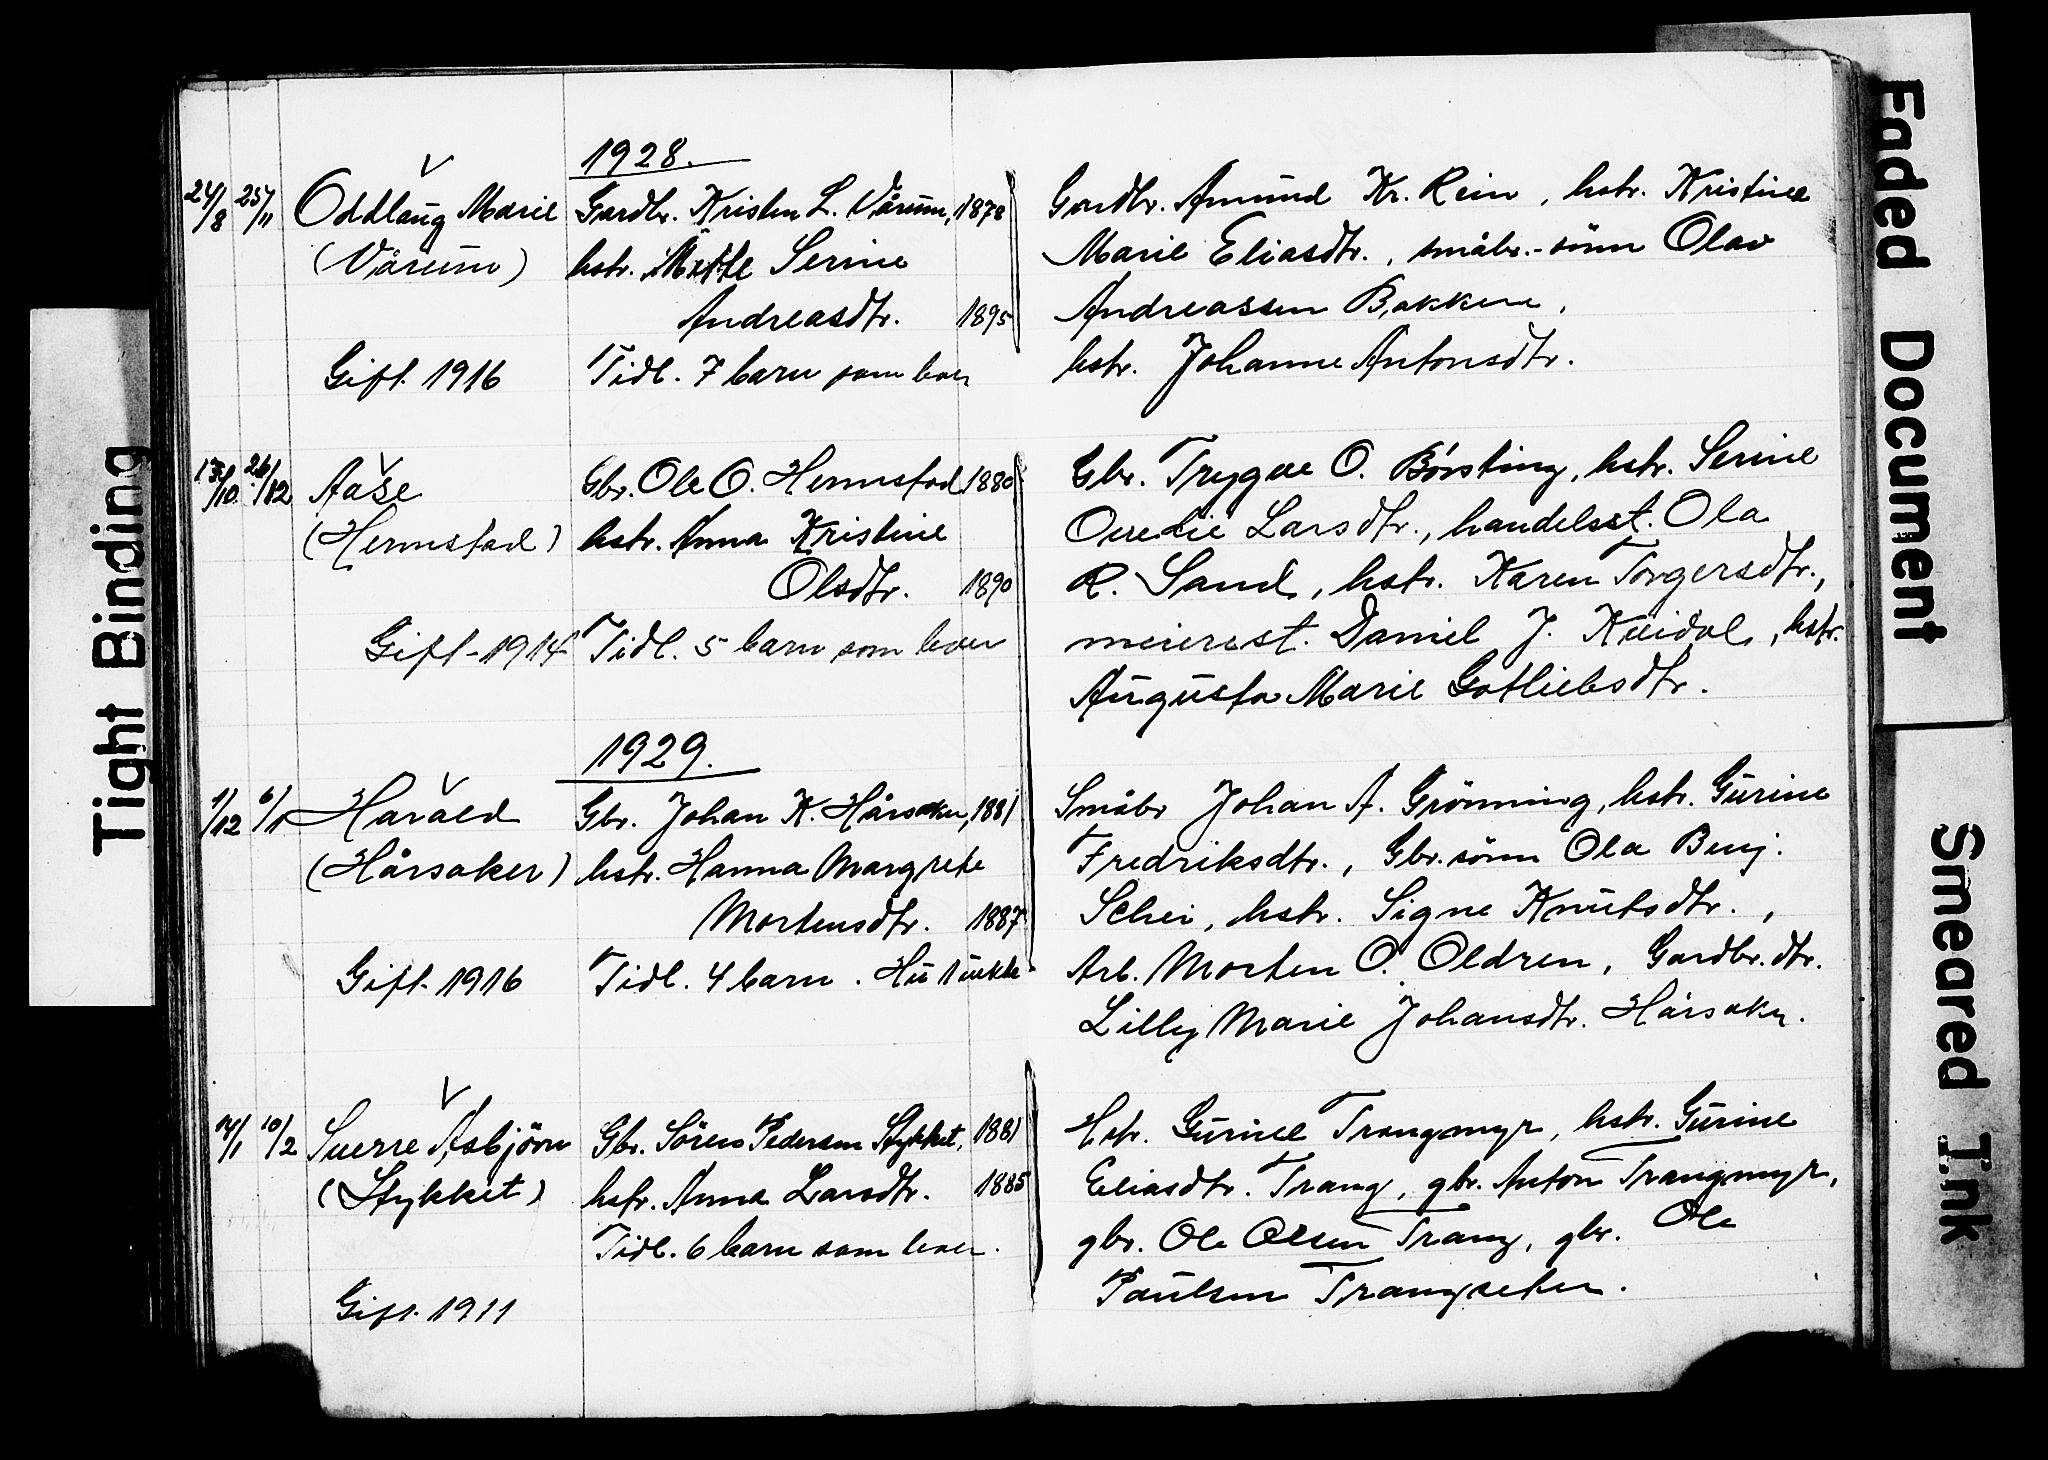 Tight Binding
Faded Document
Smeared Ink
1928.
24/8 25/11 Oddlaug Marie
(Vårum)
Gift 1916
Gardbr. Kristen L. Vårum, 1878
hstr. Mette Serine
Andreasdtr. 1895
Tidl. 7 barn som lever
Gardbr. Amund Kr. Rein, hstr. Kristine
Marie Eliasdtr., småbr.-sönn Olav
Andreassen Bakken,
hstr. Johanne Antonsdtr.
13/10 26/12 Aase
(Hermstad)
Gift 1914
Gbr. Ole O. Hermstad 1880
hstr. Anna Kristine
Olsdtr. 1890
Tidl. 5 barn som lever
Gbr. Trygve O. Børsting, hstr. Serine
Ovedie Larsdtr., handelsst. Ola
R. Sand, hstr. Karen Torgersdtr.,
meierest. Daniel J. hstr.
Augusta Marie Gotliebsdtr.
1929.
1/12 6/1 Harald
(Hårsaker)
Gift 1916
Gbr. Johan K. Hårsaker, 1881
hstr. Hanna Margrete
Mortensdtr. 1887
Tidl. 4 barn.
Småbr Johan A. Grönning, hstr. Gurine
Fredriksdtr., Gbr.sönn Ola Benj.
Schei, hstr. Signe Knutsdtr.,
Arb. Morten O. Oldren, Gardbr.dtr.
Lilly Marie Johansdtr. Hårsaker.
14/1 10/2 Sverre Asbjörn
(Stykket)
Gift 1911
Gbr. Sören Pedersen Stykket, 1881
hstr. Anna Larsdtr. 1885
Tidl. 6 barn som lever.
Hstr. Gurine Trangmyr, hstr. Gurine
Eliasdtr. Trang, gbr. Anton Trangmyr,
gbr. Ole Olsen Trang, gbr. Ole
Paulsen Trangseter.